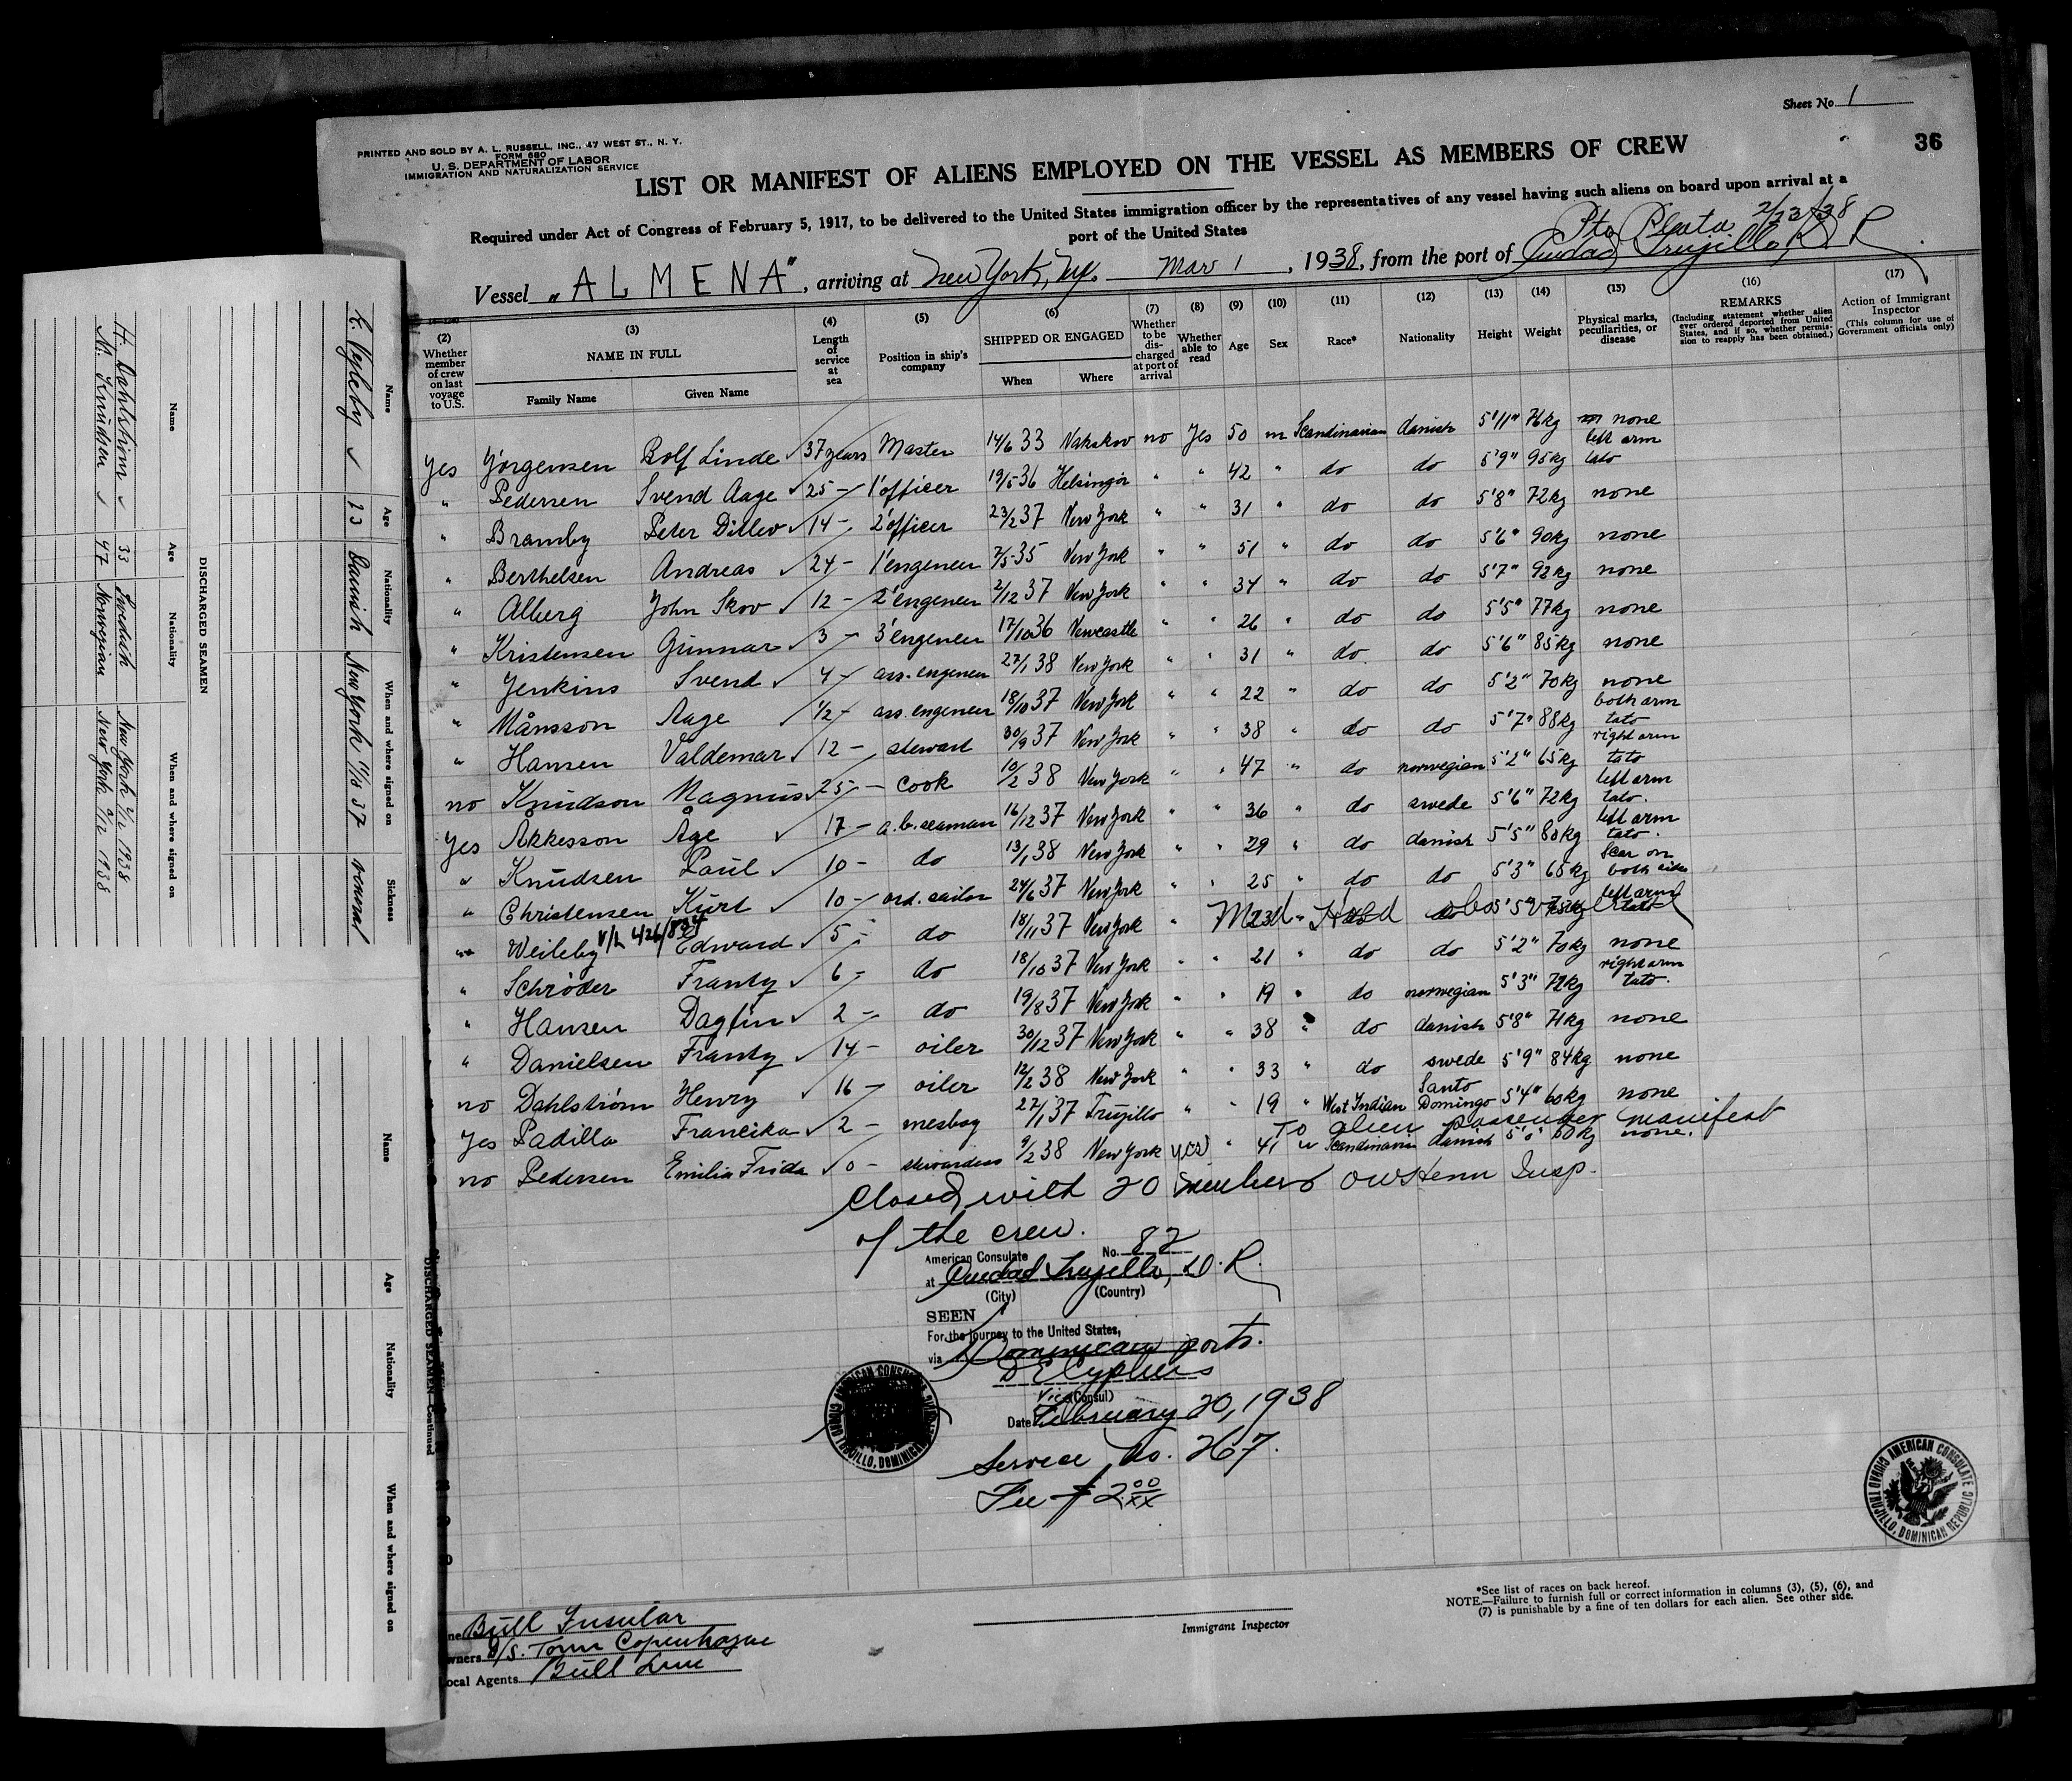 Sheet No. 1
36
PRINTED AND SOLD BY A. L. RUSSELL, INC., 47 WEST ST., N. Y.
FORM 680
U. S. DEPARTMENT OF LABOR
IMMIGRATION AND NATURALIZATION SERVICE
LIST OR MANIFEST OF ALIENS EMPLOYED ON THE VESSEL AS MEMBERS OF CREW
Required under Act of Congress of February 5, 1917, to be delivered to the United States immigration officer by the representatives of any vessel having such aliens on board upon arrival at a
port of the United States
Pto Plata 2/23/38
Vessel "ALMENA", arriving at New York, N.Y. Mar 1, 1938, from the port of Ciudad Trujillo, D. R.
(2) Whether member of crew on last voyage to U.S.
(3) NAME IN FULL Family Name Given Name
(4) Length of service at sea
(5) Position in ship's company
(6) SHIPPED OR ENGAGED When Where
(7) Whether to be discharged at port of arrival
(8) Whether able to read
(9) Age
(10) Sex
(11) Race*
(12) Nationality
(13) Height
(14) Weight
(15) Physical marks, peculiarities, or disease
(16) REMARKS (Including statement whether alien ever ordered deported from United States, and if so, whether permission to reapply has been obtained.)
(17) Action of Immigrant Inspector (This column for use of Government officials only)
yes Jörgensen Rolf Linde 37 years Master 14/6 33 Nakskov no yes 50 m Scandinavian danish 5'11" 76kg none
" Pedersen Svend Aage 25 - 1'officer 19/5 36 Helsingör " " 42 " do do 5'9" 95kg left arm tato
" Bramby Peter Ditlev 14 - 2'officer 23/2 37 New York " " 31 " do do 5'8" 72kg none
" Berthelsen Andreas 24 - 1'engeneer 7/5 35 New York " " 51 " do do 5'6" 90kg none
" Alberg John Skov 12 - 2'engeneer 2/12 37 New York " " 34 " do do 5'7" 92kg none
" Kristensen Gunnar 3 - 3'engeneer 17/10 36 Newcastle " " 26 " do do 5'5" 77kg none
" Jenkins Svend 4 - ass. engeneer 27/1 38 New York " " 31 " do do 5'6" 85kg none
" Månsson Aage 1/2 - ass. engeneer 18/10 37 New York " " 22 " do do 5'2" 70kg none
" Hansen Valdemar 12 - stewart 30/9 37 New York " " 38 " do do 5'7" 88kg both arm tato
no Knudson Magnus 25 - cook 10/2 38 New York " " 47 " do norwegian 5'2" 65kg right arm tato
yes Åkkesson Åge 17 - a.b. seaman 16/12 37 New York " " 36 " do swede 5'6" 72kg left arm tato.
" Knudsen Poul 10 - do 13/1 38 New York " " 29 " do danish 5'5" 80kg left arm tato.
" Christensen Kurt 10 - ord. sailor 24/6 37 New York " " 25 " do do 5'3" 65kg scar on both sides
" Weileby V/L Edward 5 - do 18/11 37 New York " 5'5" left arm tato
" Schröder Frantz 6 - do 18/10 37 New York " " 21 " do do 5'2" 70kg none
" Hansen Dagfin 2 - do 19/8 37 New York " " 19 " do norwegian 5'3" 72kg right arm tato.
" Danielsen Frantz 14 - oiler 30/12 37 New York " " 38 " do danish 5'8" 71kg none
no Dahlström Henry 16 - oiler 12/2 38 New York " " 33 " do swede 5'9" 84kg none
yes Padilla Francika 2 - mesboy 27/1 37 Trujillo " " 19 " West Indian Santo Domingo 5'4" 60kg none
To alien passenger manifest
no Pedersen Emilia Frida 0 - stewardess 9/2 38 New York yes " 41 Scandinavian danish 60kg none.
Closed with 20 members Insp.
of the crew.
American Consulate No. 82
at Ciudad Trujillo, D. R.
(City) (Country)
SEEN
For the journey to the United States,
via Dominican ports.
Vice (Consul)
Date February 20, 1938
Service No. 267.
Fee $2.00/xx
AMERICAN CONSULATE CIUDAD TRUJILLO, DOMINICAN REPUBLIC
*See list of races on back hereof.
NOTE.—Failure to furnish full or correct information in columns (3), (5), (6), and
(7) is punishable by a fine of ten dollars for each alien. See other side.
Immigrant Inspector
Bull Insular
wners D/S. Torm Copenhagen
ocal Agents Bull Line
Name Age Nationality When and where signed on Sickness
Danish New York 11/8 37
DISCHARGED SEAMEN
Name Age Nationality When and where signed on
H. Dahlström 33 Swedish New York 1938
M. Knudsen 47 Norwegian New York 1938
DISCHARGED SEAMEN—Continued
Name Age Nationality When and where signed on